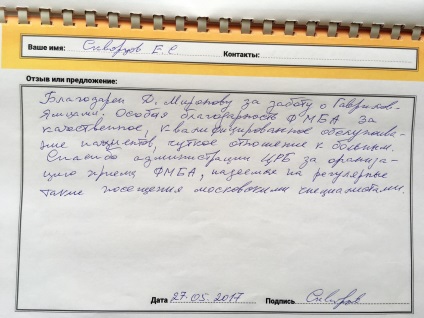 Ваше имя: Скворцов Е.С. Контакты:
Отзыв или предложение:
Благодарен Д. Миронову за заботу о Гаврилов-
Ямцами. Особая благодарность ФМБА за
качественное, квалифицированное обслужива-
ние пациентов, чуткое отношение к больным.
Спасибо администрации ЦРБ за организа-
цию приема ФМБА, надеемся на регулярные
такие посещения московскими специалистами.
Дата 27.05.2017 Подпись